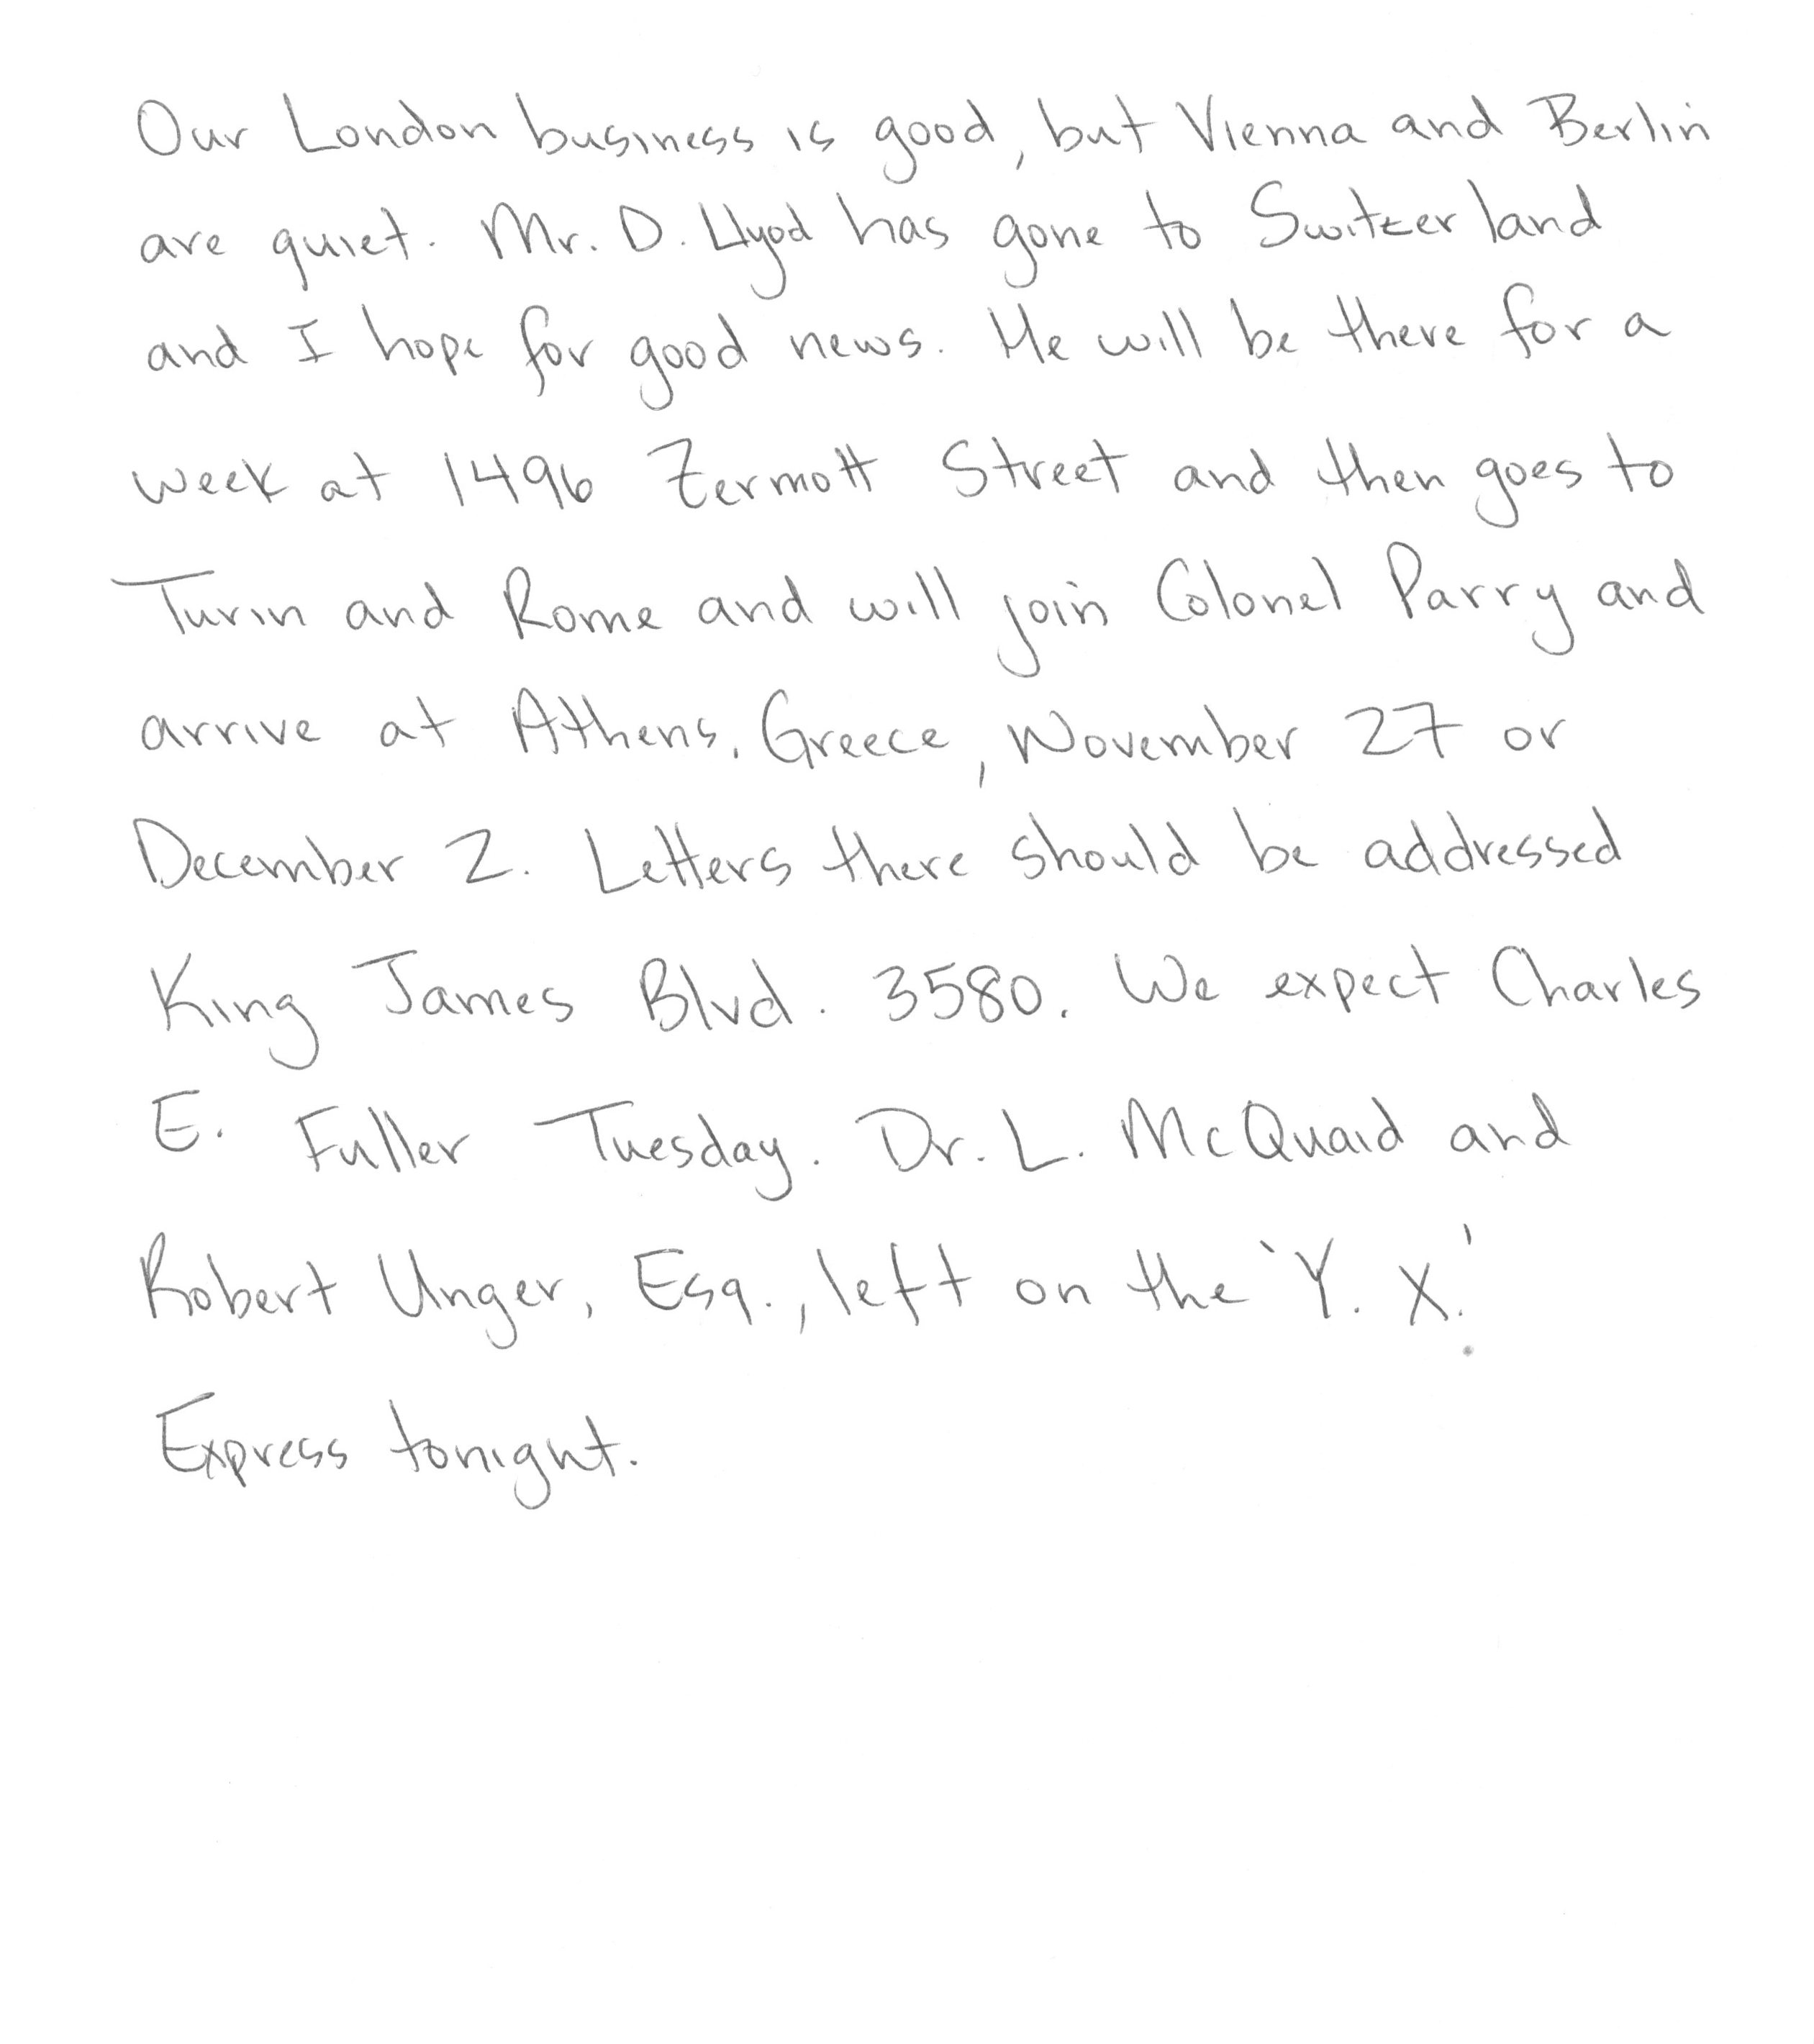 Our London business is good, but Vienna and Berlin
are quiet. Mr. D. Llyod has gone to Switzerland
and I hope for good news. He will be there for a
week at 1496 Zermott Street and then goes to
Turin and Rome and will join Colonel Parry and
arrive at Athens, Greece, November 27 or
December 2. Letters there should be addressed
King James Blvd. 3580. We expect Charles
E. Fuller Tuesday. Dr. L. McQuaid and
Robert Unger, Esq., left on the 'Y. X.'
Express tonight.